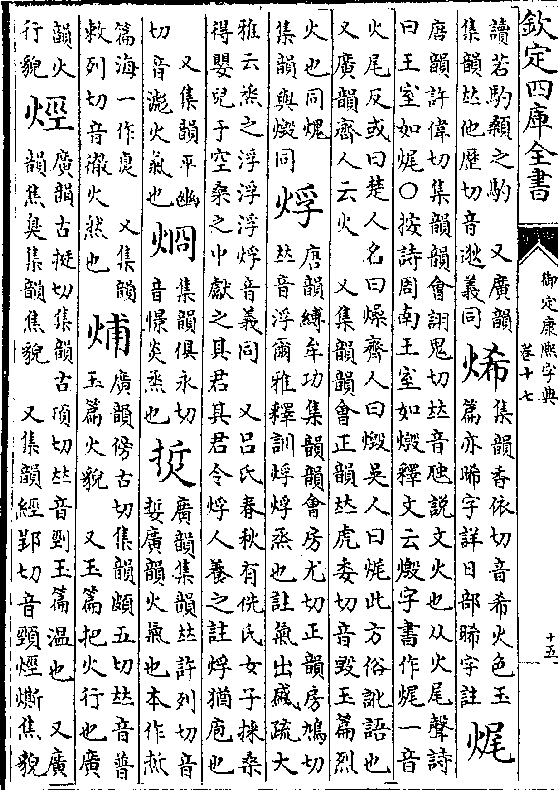 欽定四庫全書
御定康熙字典
卷十七
十五
讀若駒顙之馰 又廣韻
集韻𠀤他歷切音逖義同
烯
集韻香依切音希火色玉
篇亦睎字詳日部睎字註
𤈦
唐韻許偉切集韻韻會詡鬼切𠀤音虺說文火也从火尾聲詩
曰王室如𤈦○按詩周南王室如燬釋文云燬字書作𤈦一音
火尾反或曰楚人名曰燥齊人曰燬吳人曰𤈦此方俗訛語也
又廣韻齊人云火 又集韻韻會正韻𠀤虎委切音毀玉篇烈
火也同
集韻與燬同
烰
唐韻縛牟功集韻韻會房尤切正韻房鳩切
𠀤音浮爾雅釋訓烰烰烝也註氣出盛疏大
雅云烝之浮浮浮烰音義同 又呂氏春秋有侁氏女子採桑
得嬰兒于空桑之中獻之其君其君令烰人養之註烰猶庖也
又集韻平幽
切音滮火氣也
烱
集韻俱永切
音憬炎烝也
廣韻集韻𠀤許列切音
娎廣韻火氣也本作
篇海一作 又集韻
敕列切音徹火然也
烳
廣韻傍古切集韻頗五切𠀤音普
玉篇火貌 又玉篇把火行也廣
韻火
行貌
烴
廣韻古挺切集韻古頂切𠀤音剄玉篇溫也 又廣
韻焦臭集韻焦貌 又集韻經郢切音頸烴㷫焦貌